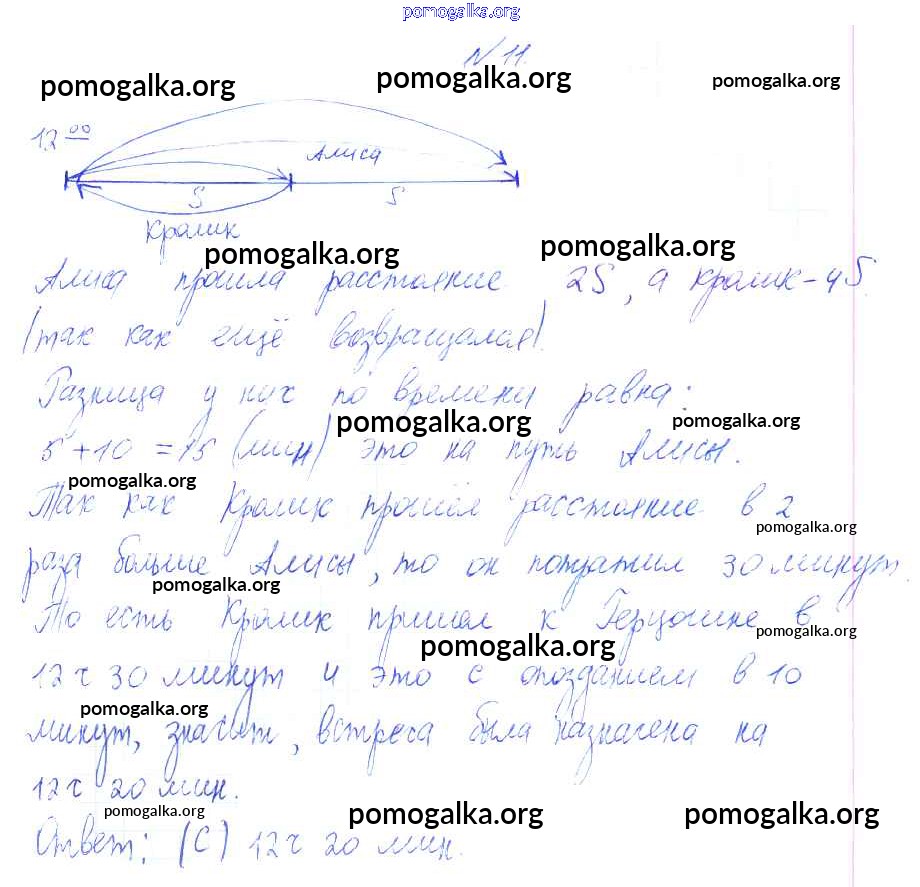 pomogalka.org
№ 11.
pomogalka.org pomogalka.org pomogalka.org
12 00
Алиса
S S
Кролик
pomogalka.org pomogalka.org
Алиса прошла расстояние 2S, а кролик - 4S.
(так как ещё возвращался).
Разница у них по времени равна:
pomogalka.org pomogalka.org
5 + 10 = 15 (мин) это на путь Алисы.
pomogalka.org
Так как Кролик прошёл расстояние в 2
pomogalka.org
раза больше Алисы, то он потратил 30 минут.
pomogalka.org
То есть Кролик пришел к Герцогине в
pomogalka.org pomogalka.org
12 ч 30 минут и это с опозданием в 10
pomogalka.org
минут, значит, встреча была назначена на
12 ч 20 мин.
pomogalka.org pomogalka.org pomogalka.org
Ответ: (С) 12 ч 20 мин.